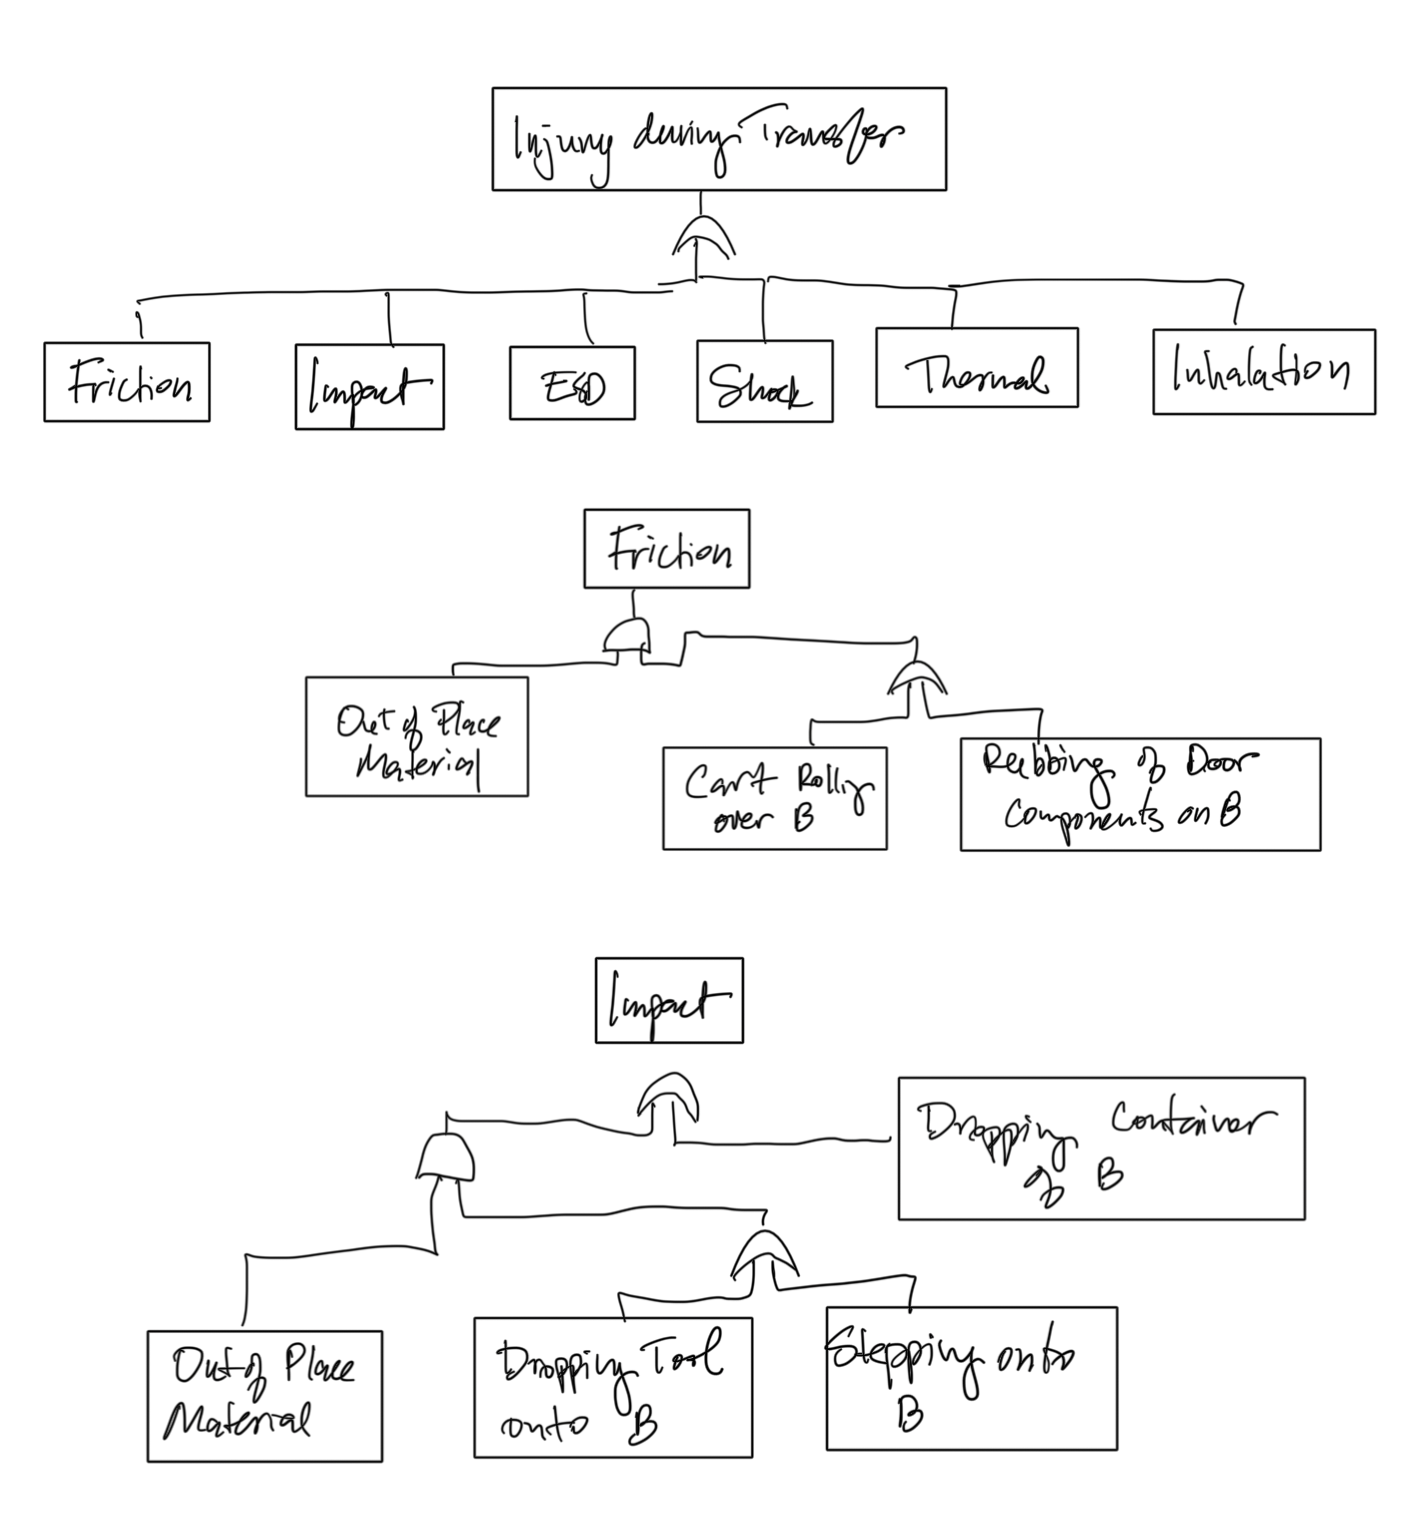 Injury during Transfer
Friction
Impact
ESD
Shock
Thermal
Inhalation
Friction
Out of Place
Material
Cart Rolling
over B
Rubbing of Door
Components on B
Impact
Dropping Container
of B
Out of Place
Material
Dropping Tool
onto B
Stepping onto
B